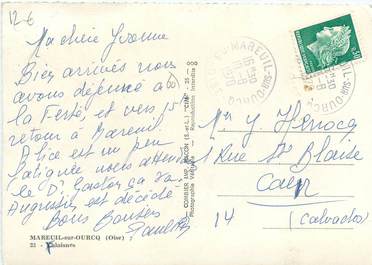 12-6
Ma chère Yvonne
Bien arrivés nous
avons déjeuné à
la Ferté, et vers 15 h
retour à Mareuil
Alice est un peu
fatiguée nous attendons
le Dr Gaston ça va.
Augustin est décédé
Bons Baisers
MAREUIL-sur-OURCQ (Oise) 7
23 - Plaisants
COMBIER IMP. MACON (S.-et-L.) "CIM"
Photographie Véritable - Reproduction Interdite
MAREUIL-sur-OURCQ
16 H 30
1970
0,30
Mme Y Henocq
1 Rue St Blaise
Caen
14 (Calvados)